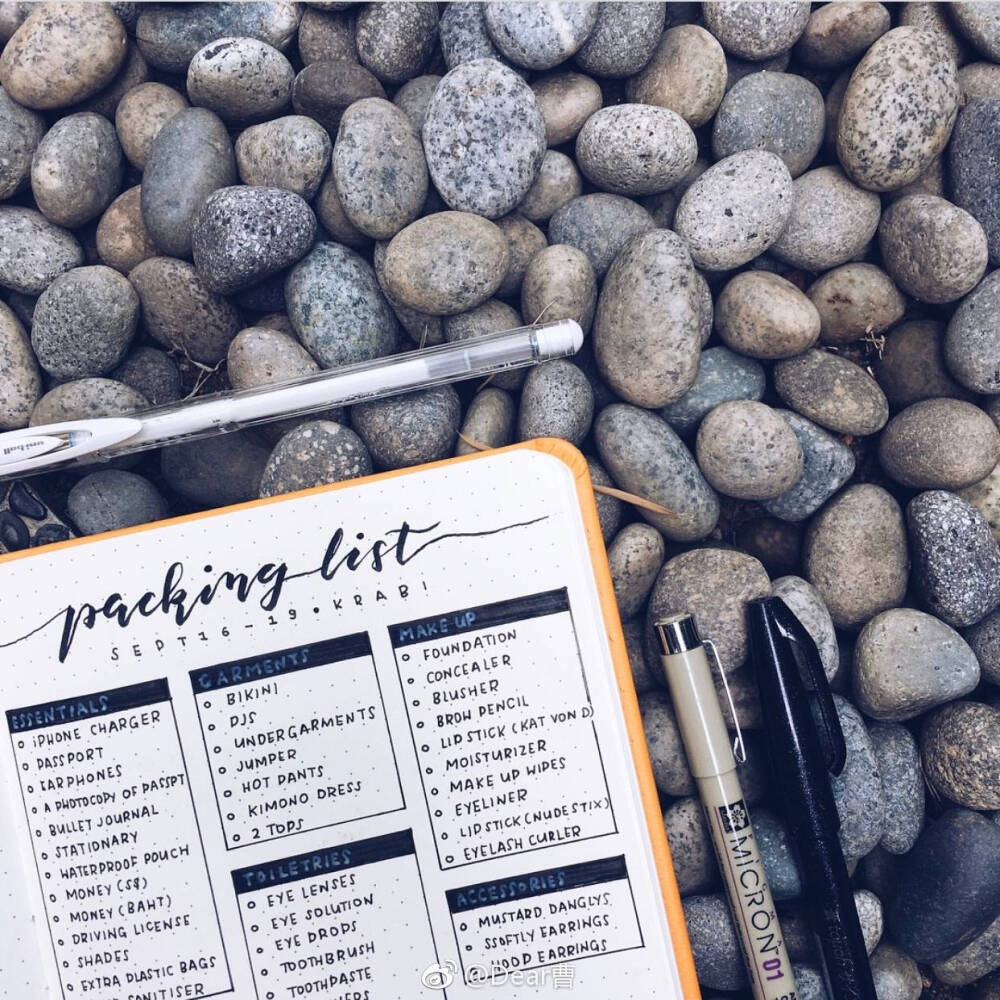 uni-ball
packing list
SEPT 16-19 • KRABI
ESSENTIALS
IPHONE CHARGER
PASSPORT
EARPHONES
A PHOTOCOPY OF PASSPT
BULLET JOURNAL
STATIONARY
WATERPROOF POUCH
MONEY (S$)
MONEY (BAHT)
DRIVING LICENSE
SHADES
EXTRA PLASTIC BAGS
SANITISER
GARMENTS
BIKINI
PJS
UNDERGARMENTS
JUMPER
HOT PANTS
KIMONO DRESS
2 TOPS
TOILETRIES
EYE LENSES
EYE SOLUTION
EYE DROPS
TOOTHBRUSH
TOOTHPASTE
MAKE UP
FOUNDATION
CONCEALER
BLUSHER
BROW PENCIL
LIP STICK (KAT VON D)
MOISTURIZER
MAKE UP WIPES
EYELINER
LIP STICK (NUDESTIX)
EYELASH CURLER
ACCESSORIES
MUSTARD DANGLYS
SSOFTLY EARRINGS
HOOP EARRINGS
MICRON 01
@Dear曹